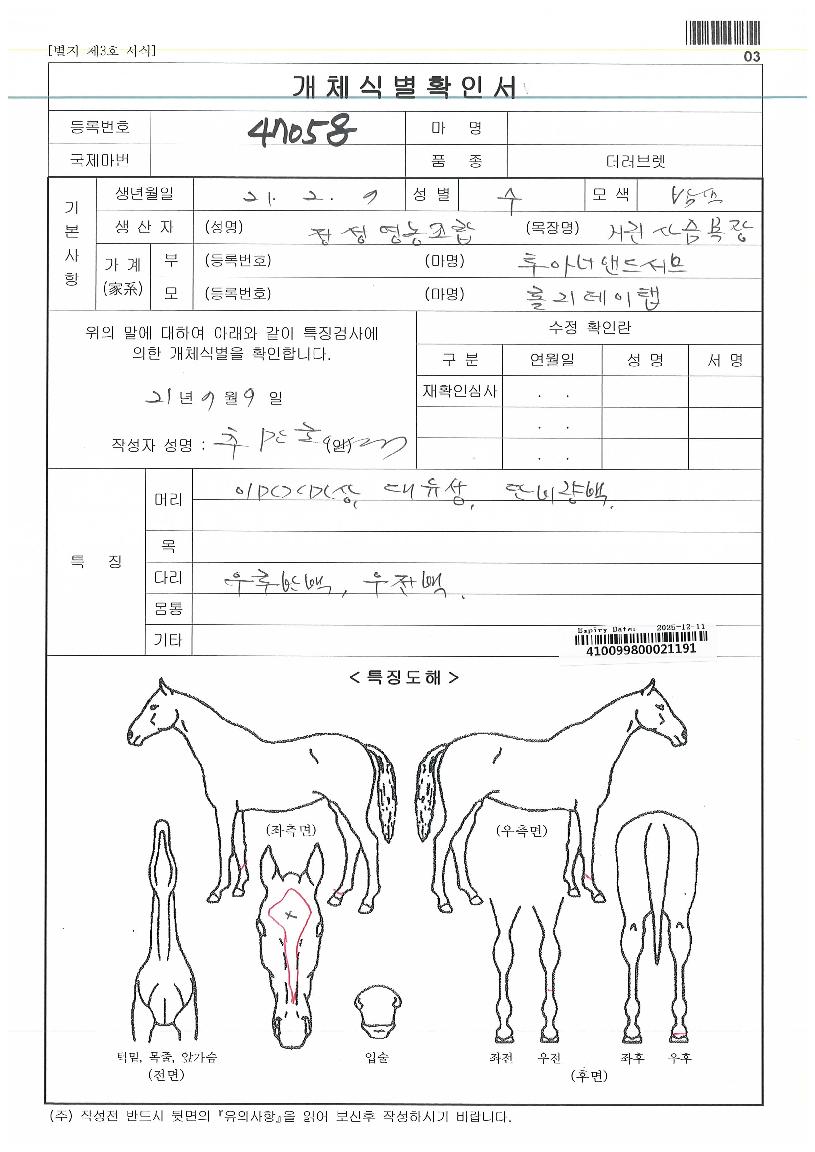 [별지 제3호 서식]
03
개체식별확인서
등록번호 47058 마 명
국제마번 품 종 더러브렛
기본사항
생년월일 21. 2. 9 성 별 수 모 색 밤색
생 산 자 (성명) 영농조합 (목장명) 사슴목장
가 계 (家系) 부 (등록번호) (마명) 투아너앤드서브
모 (등록번호) (마명) 홀리데이탭
위의 말에 대하여 아래와 같이 특징검사에
의한 개체식별을 확인합니다.
21년 9월 9일
작성자 성명 : (인)
수정 확인란
구 분 연월일 성 명 서 명
재확인심사 . .
. .
. .
특 징
머리 대유성, 비량백.
목
다리 우후반백, 우전백.
몸통
기타
Expiry Date: 2025-12-11
410099800021191
< 특징도해 >
(좌측면) (우측면)
턱밑, 목줄, 앞가슴 입술 좌전 우전 좌후 우후
(전면) (후면)
(주) 작성전 반드시 뒷면의 『유의사항』을 읽어 보신후 작성하시기 바랍니다.